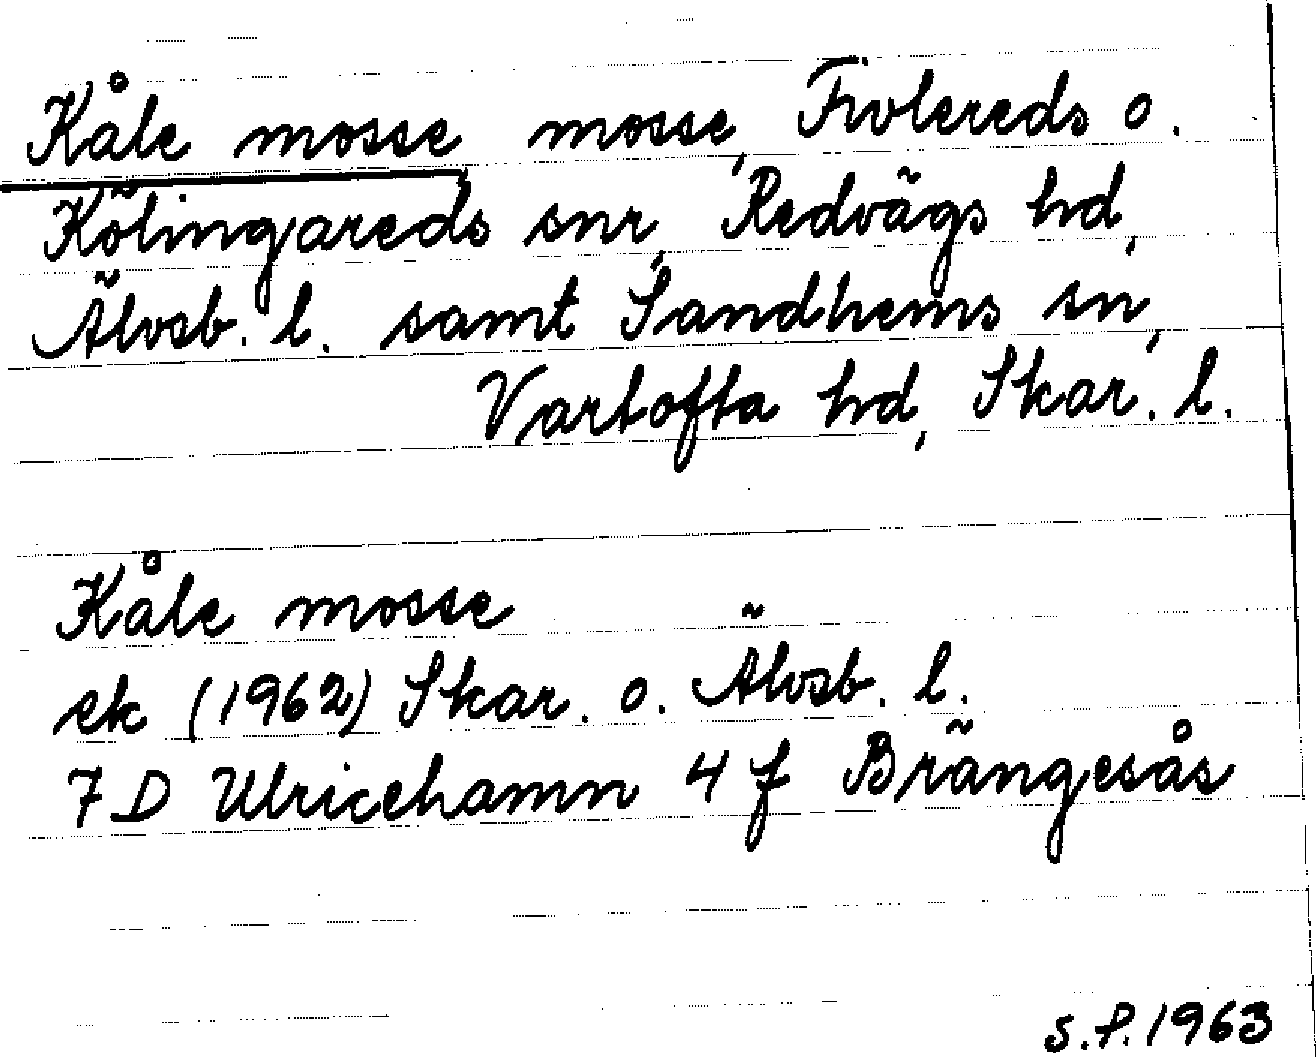 Kåle mosse mosse, Fivlereds o.
Kölingareds snr, Redvägs hd,
Älvsb. l. samt Sandhems sn,
Vartofta hd, Skar. l.
Kåle mosse
ek (1962) Skar. o. Älvsb. l.
7 D Ulricehamn 4 f Brängesås
S.P. 1963